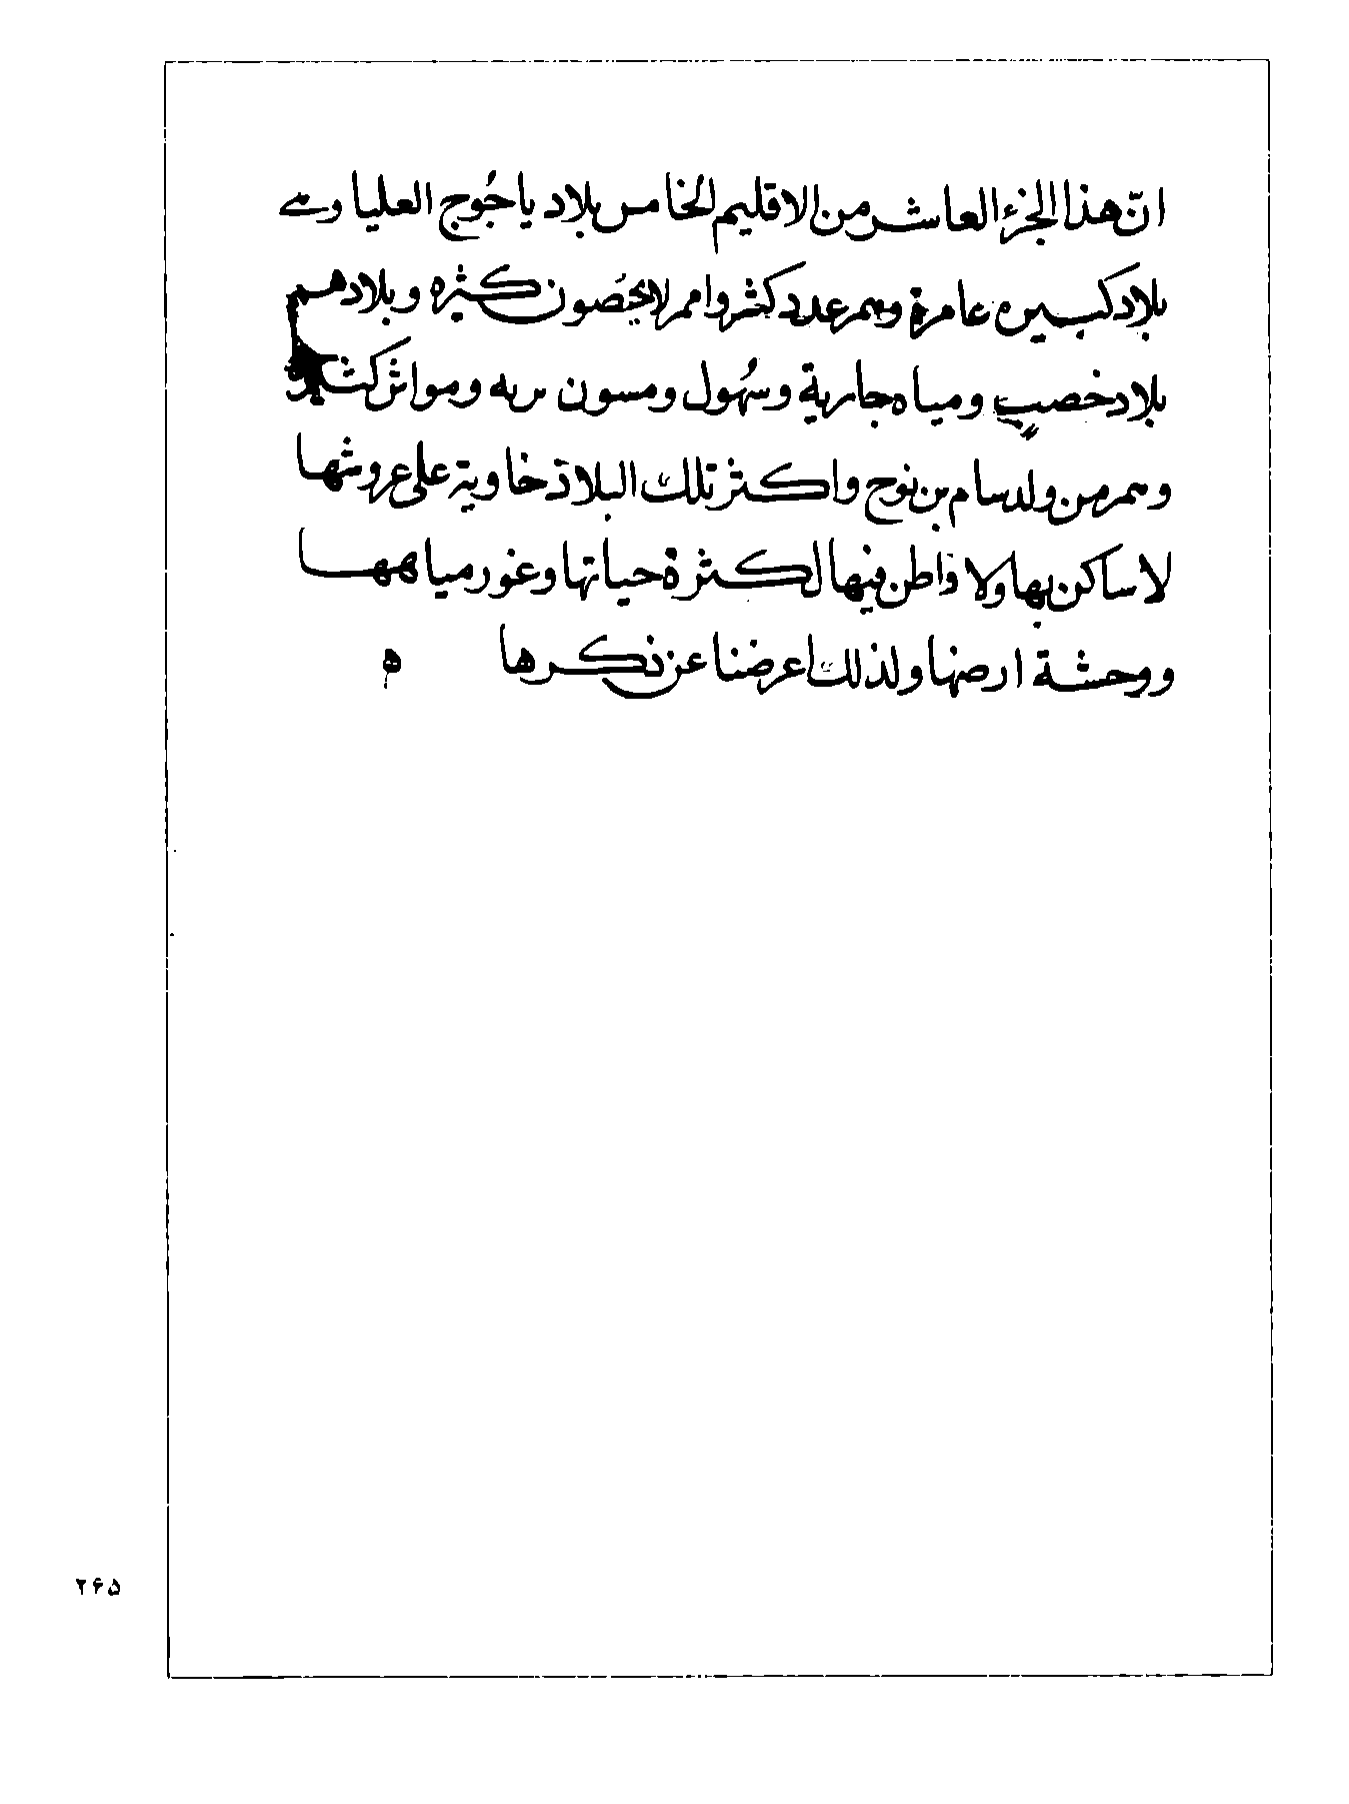 انّ هذا الجزء العاشر من الاقليم الخامس بلاد ياجُوج العليا وهي
بلاد كبيره عامرة وهم عدد كثير وامم لا يحُصون كثيره وبلادهم
بلاد خصب ومياه جارية وسُهول ومواش كثيرة
وهم من ولد سام بن نوح واكثر تلك البلاد خاوية على عروشها
لا ساكن بها ولا قاطن فيها لكثرة حياتها وغور مياهها
ووحشة ارضها ولذلك اعرضنا عن ذكرها ه
۲۶۵